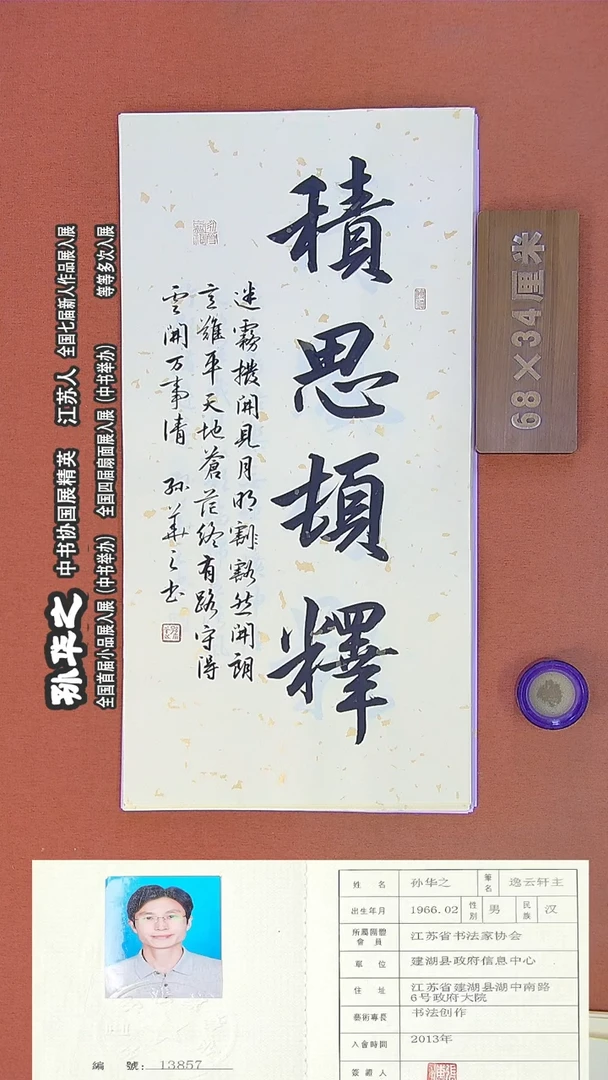 積思頓釋
迷霧撥開見月明豁豁然開朗
雲開万事清 孙華之书
孙华之 中书协国展精英 江苏人 全国七届新人作品展入展
全国首届小品展入展（中书举办） 全国四届扇面展入展（中书举办） 等等多次入展
68×34厘米
姓名 孙华之 筆名 逸云轩主
出生年月 1966.02 性別 男 民族 汉
所屬團體會員 江苏省书法家协会
單位 建湖县政府信息中心
住址 江苏省建湖县湖中南路
6号政府大院
藝術專長 书法创作
入會時間 2013年
簽證人
編號: 13857